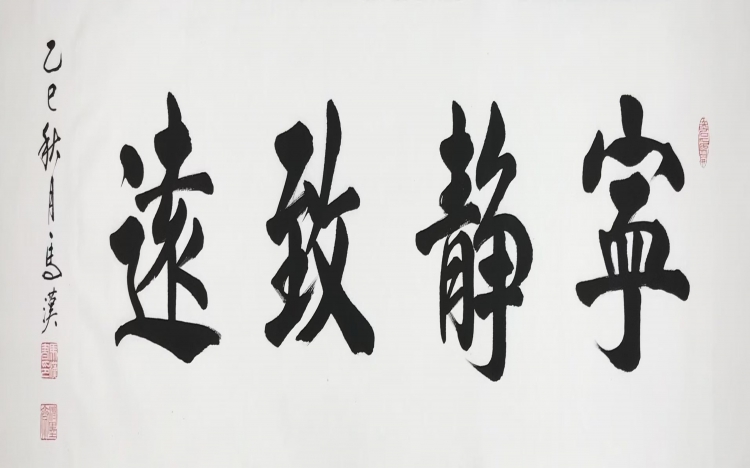 寧靜致遠
乙巳秋月馬漢